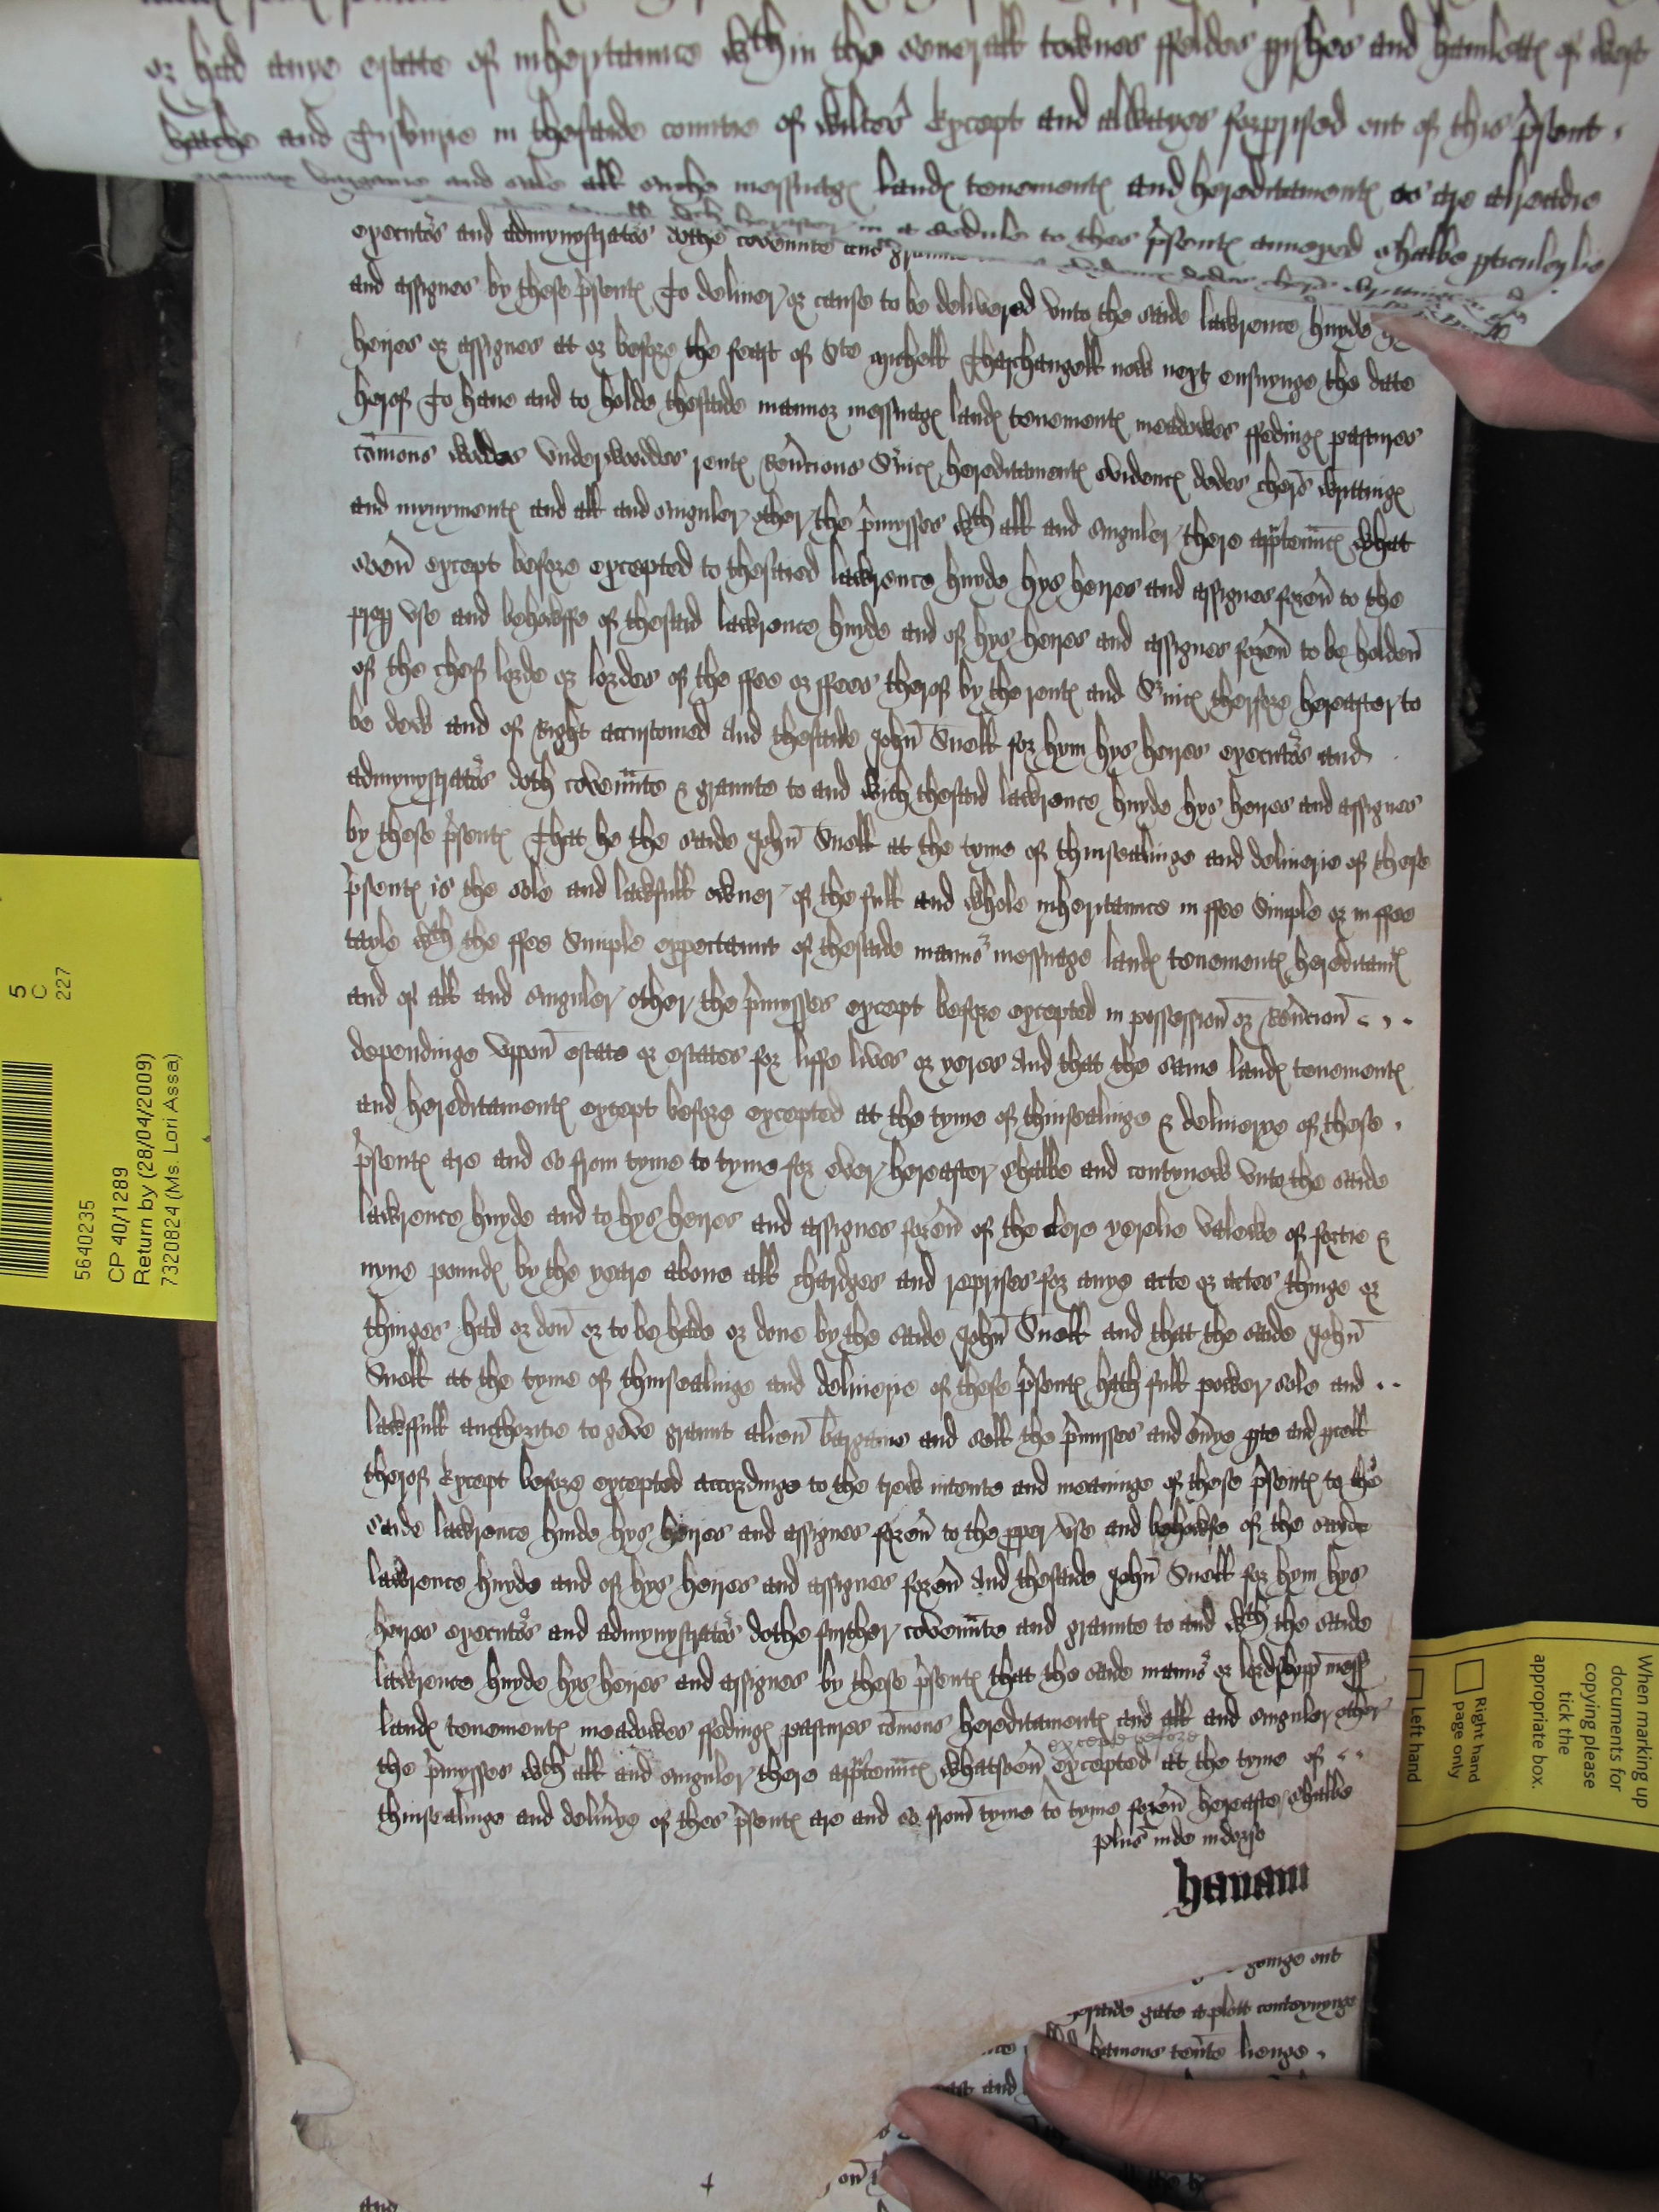 or had anye estate of inheritaunce wthin the severall townes ffeldes pishes and hamlettes of west
hatche and Tisburie in thesaide countie of Wiltes Except and allwayes forprised out of this psent
graunte bargaine and sale all suche messuages landes tenementes and hereditamentes as are alreadie
in a sedule to thes psentes annexed shalbe pticulerlie
executors and admynystrators dothe covennte and graunte
and assignes by these psentes To deliver or cause to be delivered unto the saide lawrence huyde hys
heires or assignes at or before the feast of Ste Michell Tharchangell now next ensuynge the date
herof To have and to holde thesaide mannor messuages landes tenementes meadowes ffedinges pastures
comons woddes underwoddes rentes revcions Svices hereditamentes evidences dedes chers writtinges
and mynymentes and all and singuler other the pmysses wth all and singuler there apptennces what
soevr except before excepted to thesaied lawrence huyde hys heires and assignes forevr to the
prop use and behowffe of thesaid lawrence huyde and of hys heires and assignes forevr to be holden
of the chef lorde or lordes of the ffee or ffees therof by the rentes and Svices therfore hereafter to
be dew and of Right accustomed And thesaide John Snell for hym hys heires executors and
admynystrators doth covennte & graunte to and with thesaid lawrence huyde hys heires and assignes
by these psentes That he the saide John Snell at the tyme of thinsealinge and deliverie of these
psentes is the sole and lawfull owner of the full and whole inheritaunce in ffee Simple or in ffee
tayle wth the ffee Simple expectaunt of thesaide mannor messuage landes tenementes hereditamtes
and of all and singuler other the pmysses except before excepted in possession or Revcion
dependinge uppon estate or estates for liffe lives or yeres And that the same landes tenementes
and hereditamentes except before excepted at the tyme of thinsealinge & deliverye of these
psentes are and so from tyme to tyme for ever hereafter shalbe and contynew unto the saide
lawrence huyde and to hys heires and assignes forevr of the clere yerelie valewe of fortie &
nyne poundes by the yeare above all chardges and reprises for anye acte or actes thinge or
thinges had or don or to be hade or done by the saide John Snell and that the saide John
Snell at the tyme of thinsealinge and deliverie of these psentes hath full power sole and
lawffull aucthoritie to geve graunt alien bargaine and sell the pmisses and evrye pte and pcell
therof Except before excepted accordinge to the trew intente and meaninge of these psentes to the
saide lawrence huide hys heires and assignes forevr to the pper use and behowfe of the sayde
lawrence huyde and of hys heires and assignes forevr And thesaide John Snell for hym hys
heires executors and admynystrators dothe further covennte and graunte to and wth the saide
lawrence huyde hys heires and assignes by these psentes that the saide mannor or lordshipp mess
landes tenementes meadowes ffedinges pastures comons hereditamentes and all and singuler other
the pmysses wth all and singuler there apptennces whatsoevr except before excepted at the tyme of
thinsealinge and delivye of thes psentes are and so from tyme to tyme forevr hereafter shalbe
plus inde indorso
hanam
goinge out
saide gate a plott conteynynge
tente lienge
and
5
C
227
5640235
CP 40/1289
Return by (28/04/2009)
7320824 (Ms. Lori Assa)
When marking up
documents for
copying please
tick the
appropriate box.
Right hand
page only
Left hand